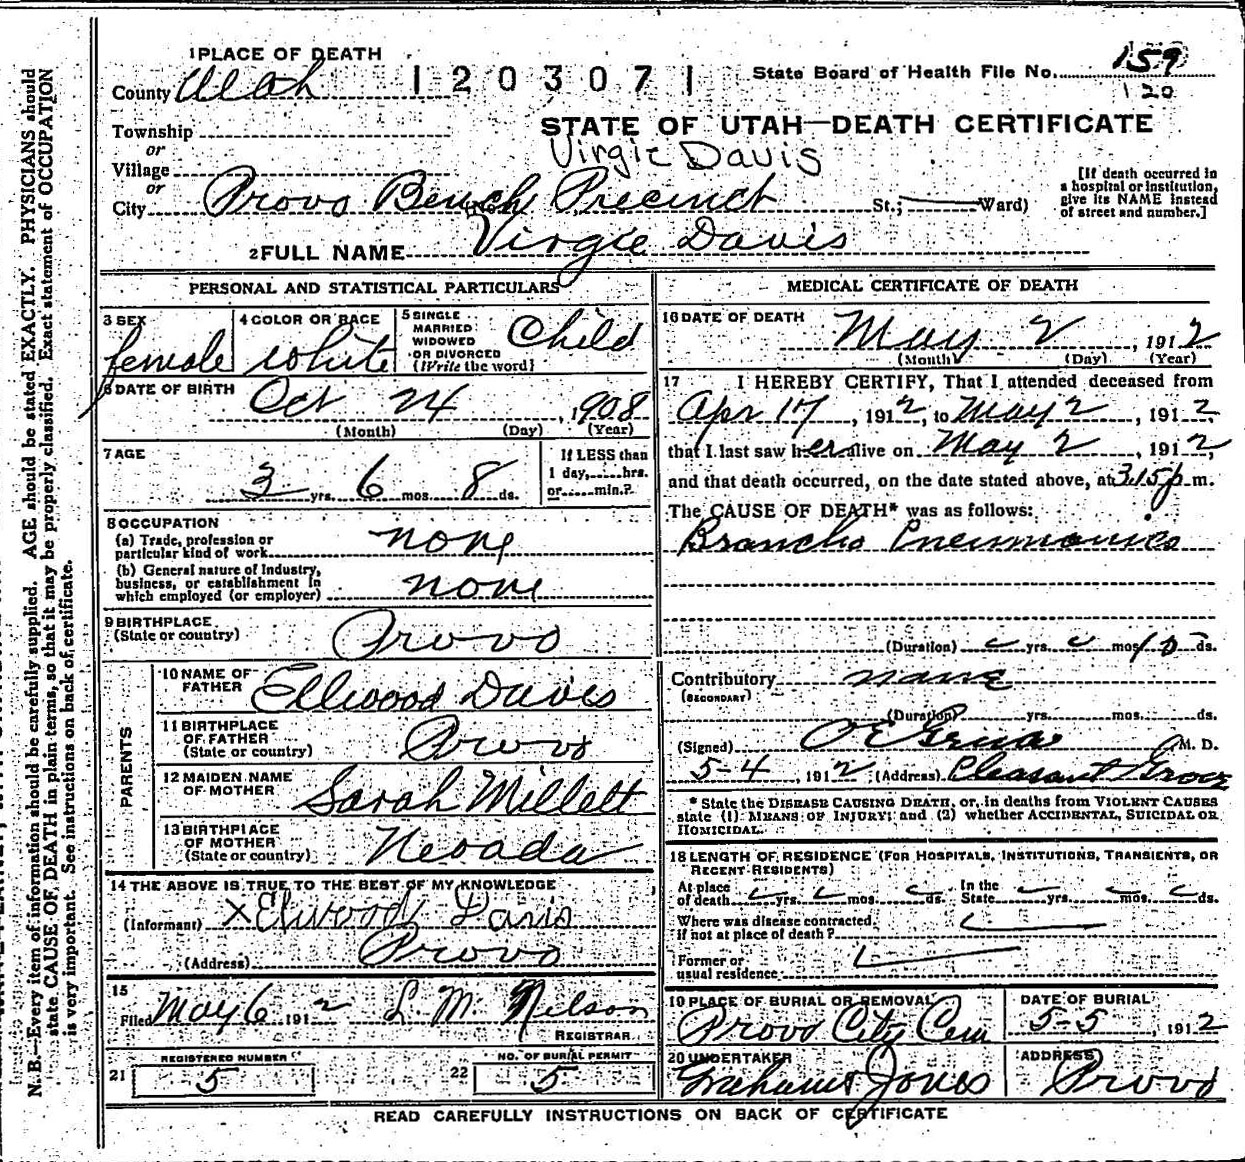 1 PLACE OF DEATH
County Utah
1203071
State Board of Health File No. 159
120
Township
or
Village
or
City Provo Bench Precinct St.; Ward)
STATE OF UTAH—DEATH CERTIFICATE
Virgie Davis
[If death occurred in
a hospital or institution,
give its NAME instead
of street and number.]
2 FULL NAME Virgie Davis
PERSONAL AND STATISTICAL PARTICULARS
3 SEX
female
4 COLOR OR RACE
white
5 SINGLE
MARRIED
WIDOWED
OR DIVORCED
(Write the word)
Child
6 DATE OF BIRTH
Oct 24, 1908
(Month) (Day) (Year)
7 AGE
3 yrs. 6 mos. 8 ds.
If LESS than
1 day,......hrs.
or......min.?
8 OCCUPATION
(a) Trade, profession or
particular kind of work none
(b) General nature of Industry,
business, or establishment in
which employed (or employer) none
9 BIRTHPLACE
(State or country) Provo
PARENTS
10 NAME OF
FATHER Ellwood Davis
11 BIRTHPLACE
OF FATHER
(State or country) Provo
12 MAIDEN NAME
OF MOTHER Sarah Millett
13 BIRTHPLACE
OF MOTHER
(State or country) Nevada
14 THE ABOVE IS TRUE TO THE BEST OF MY KNOWLEDGE
(Informant) x Elwood Davis
(Address) Provo
15
Filed May 6 1912 L. M. Nilson
REGISTRAR
REGISTERED NUMBER
21 5
NO. OF BURIAL PERMIT
22 5
MEDICAL CERTIFICATE OF DEATH
16 DATE OF DEATH
May 2, 1912
(Month) (Day) (Year)
17 I HEREBY CERTIFY, That I attended deceased from
Apr 17, 1912, to May 2, 1912
that I last saw her alive on May 2, 1912,
and that death occurred, on the date stated above, at 315 p m.
The CAUSE OF DEATH* was as follows:
Brancho Pneumonies
(Duration) yrs. mos. ds.
Contributory none
(SECONDARY)
(Duration) yrs. mos. ds.
(Signed) M. D.
5-4, 1912 (Address) Pleasant Grove
* State the DISEASE CAUSING DEATH, or, in deaths from VIOLENT CAUSES
state (1) MEANS OF INJURY; and (2) whether ACCIDENTAL, SUICIDAL OR
HOMICIDAL.
18 LENGTH OF RESIDENCE (FOR HOSPITALS, INSTITUTIONS, TRANSIENTS, OR
RECENT RESIDENTS)
At place
of death yrs. mos. ds.
In the
State yrs. mos. ds.
Where was disease contracted,
if not at place of death?
Former or
usual residence
19 PLACE OF BURIAL OR REMOVAL
Provo City Cem
DATE OF BURIAL
5-5, 1912
20 UNDERTAKER
Grahams Jones
ADDRESS
Provo
READ CAREFULLY INSTRUCTIONS ON BACK OF CERTIFICATE
N. B.—Every item of information should be carefully supplied. AGE should be stated EXACTLY. PHYSICIANS should
state CAUSE OF DEATH in plain terms, so that it may be properly classified. Exact statement of OCCUPATION
is very important. See instructions on back of certificate.